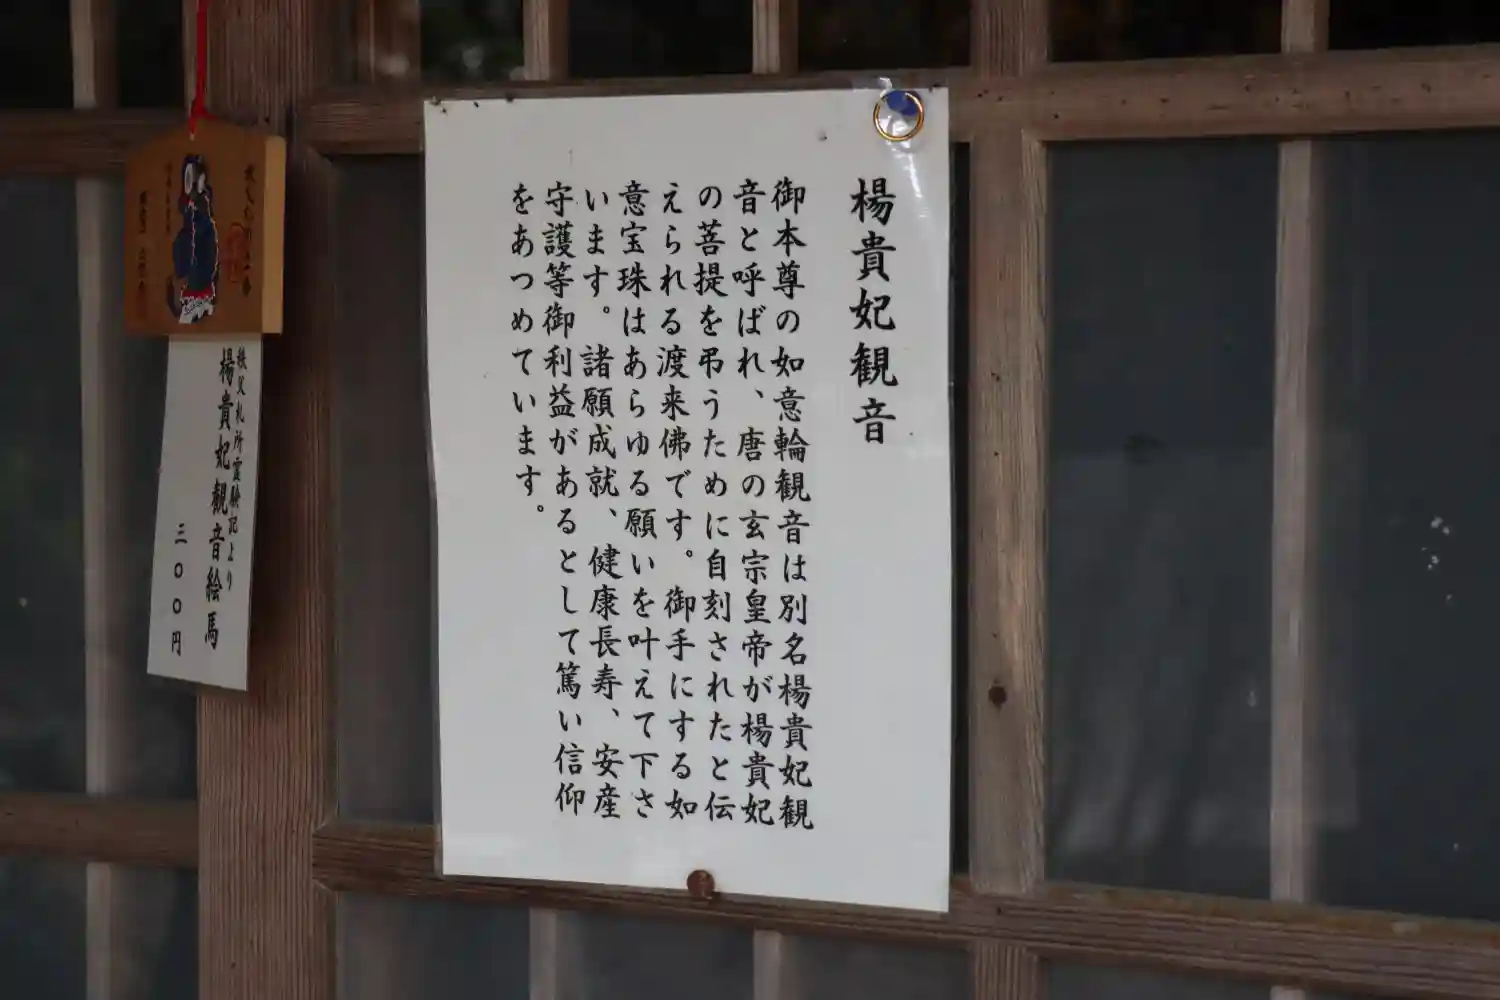 楊貴妃観音
御本尊の如意輪観音は別名楊貴妃観
音と呼ばれ、唐の玄宗皇帝が楊貴妃
の菩提を弔うために自刻されたと伝
えられる渡来佛です。御手にする如
意宝珠はあらゆる願いを叶えて下さ
います。諸願成就、健康長寿、安産
守護等御利益があるとして篤い信仰
をあつめています。
秩父札所霊験記より
楊貴妃観音絵馬
三〇〇円